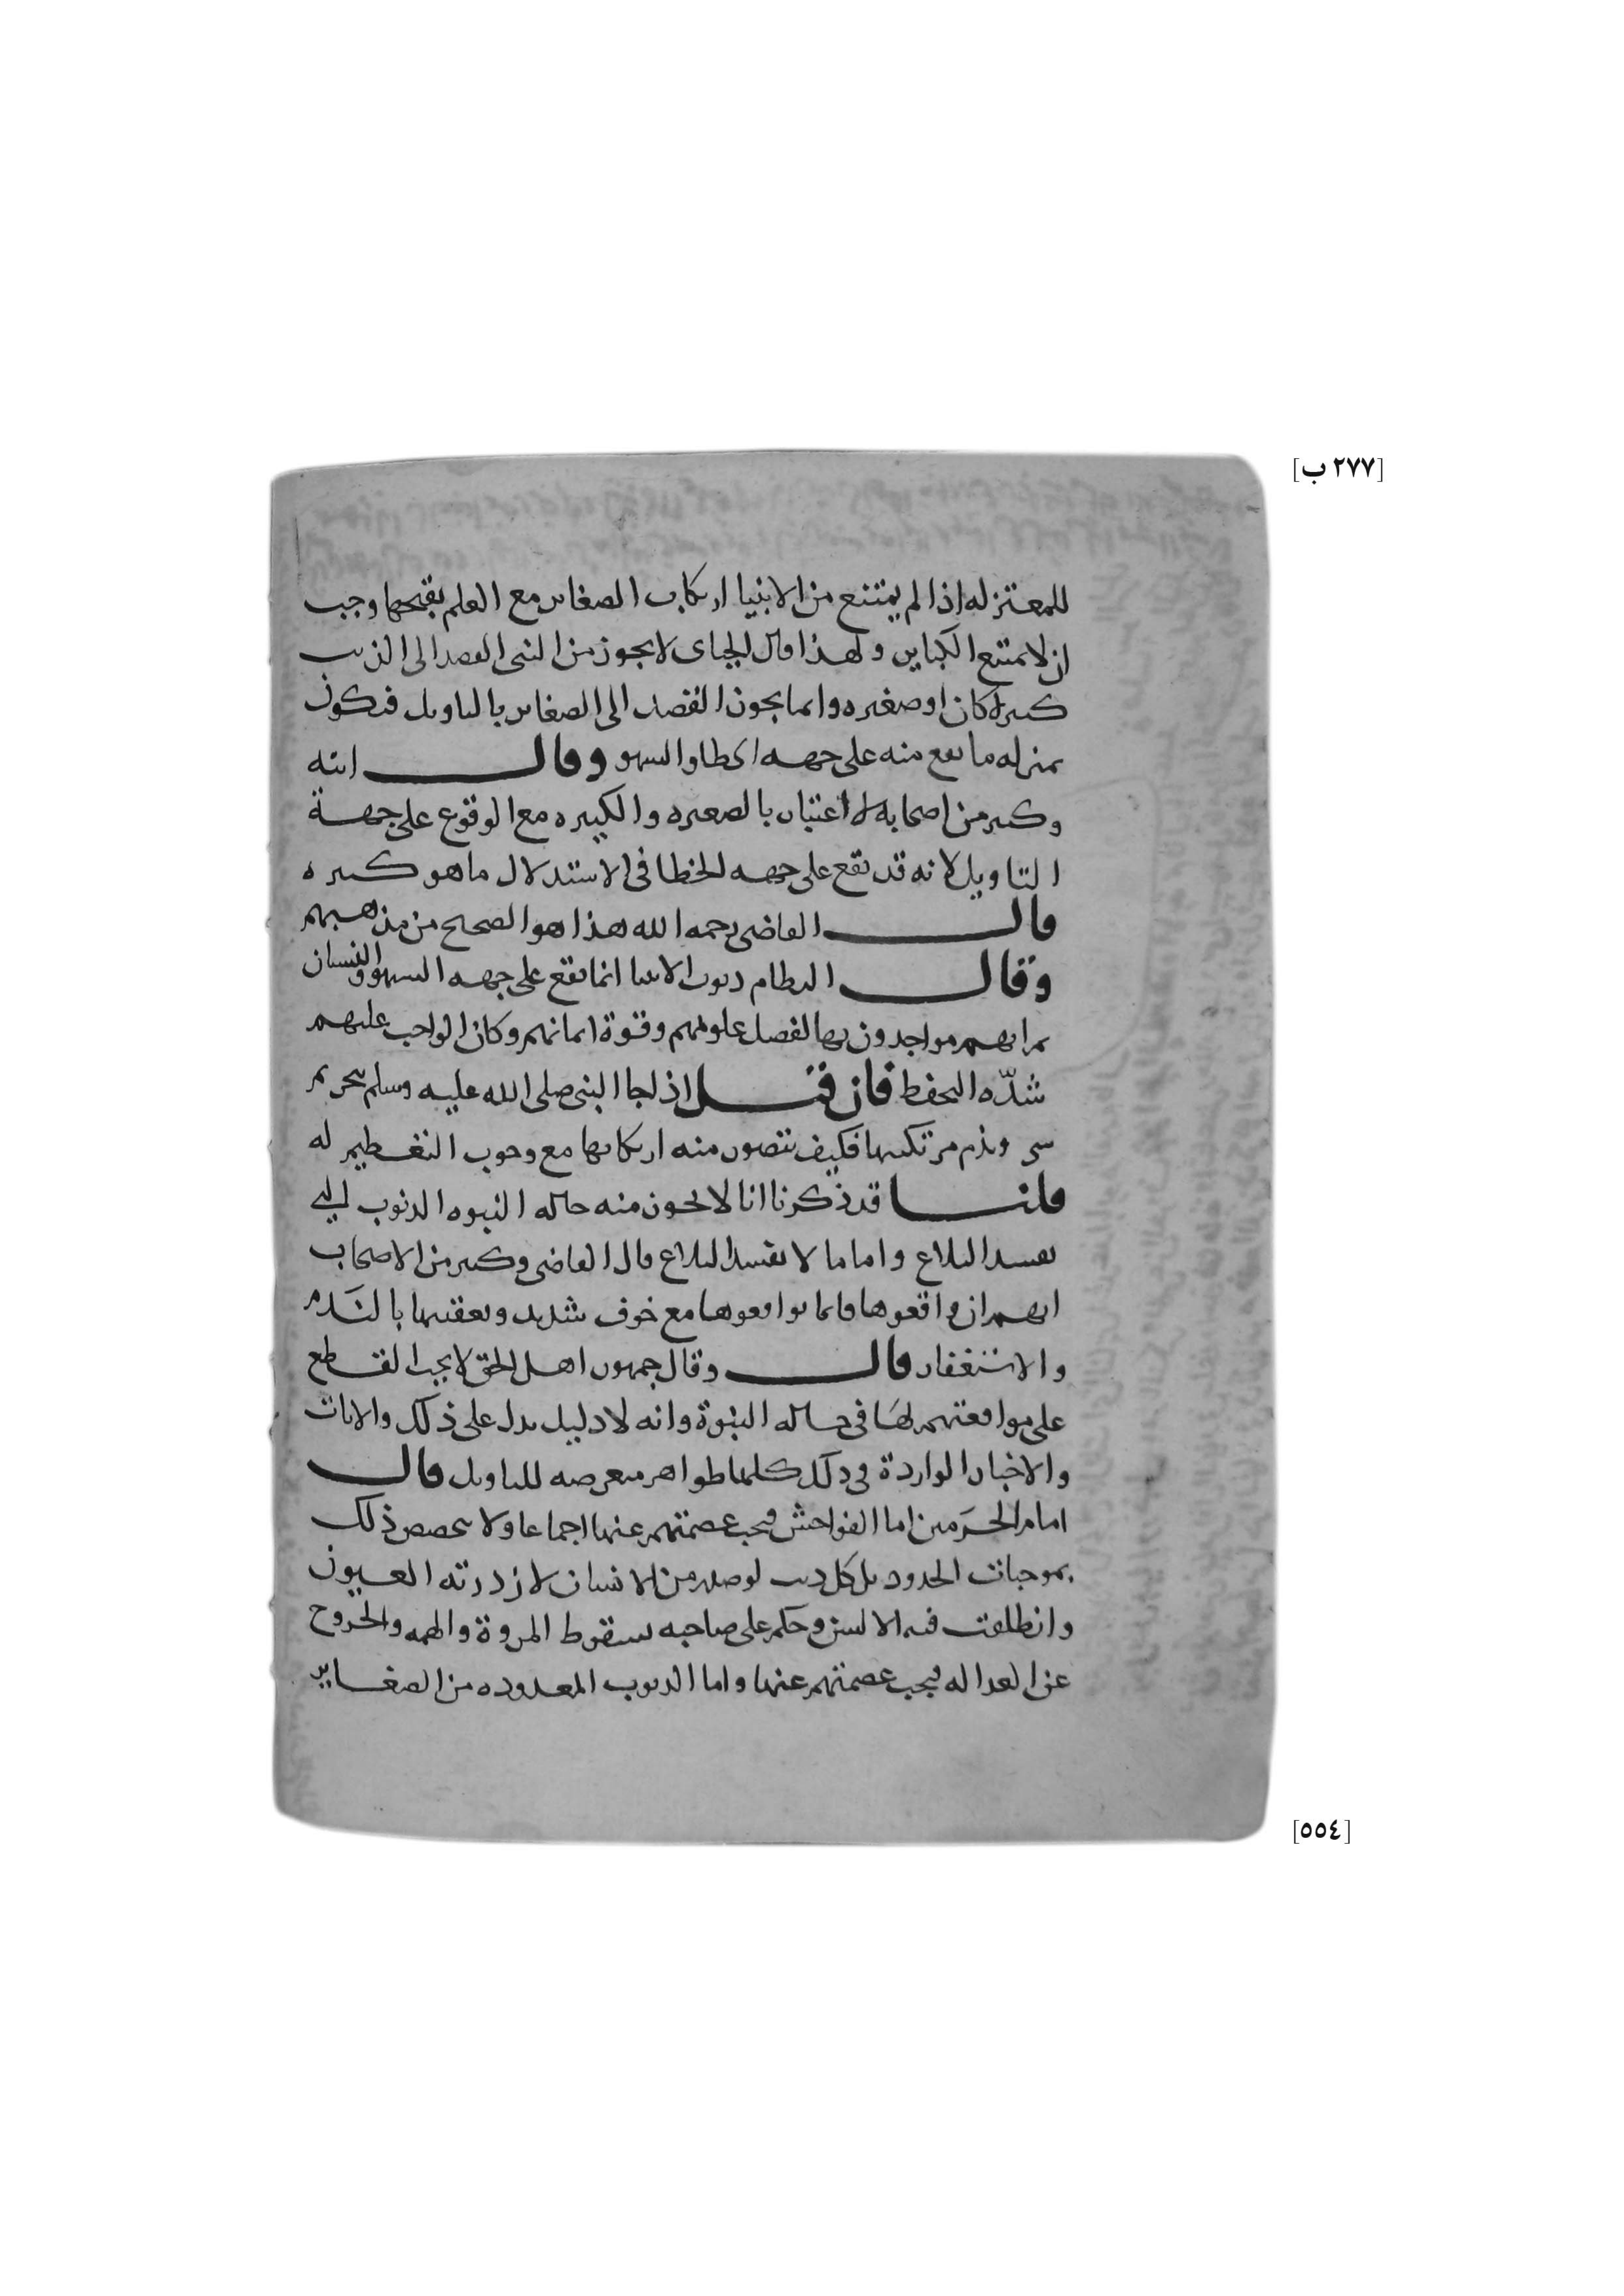 [٢٧٧ ب]
للمعتزله اذا لم يمتنع من الانبيا ارتكاب الصغاير مع العلم بقبحها وجب
ان لا يمتنع الكباير ولهذا قال الجباى لا يجوز من النبى القصد الى الذنب
كبيرا كان او صغيره وانما يجوز القصد الى الصغاير بالتاويل فتكون
بمنزله ما يقع منه على جهه الخطا والسهو وقال ابنه
وكثير من اصحابه لا اعتبار بالصغيره والكبيره مع الوقوع على جهة
التاويل لانه قد يقع على جهه الخطا فى الاستدلال ما هو كبيره
قال القاضى رحمه الله هذا هو الصحيح من مذهبهم
وقال النظام ذنوب الانبيا انما تقع على جهه السهو والنسيان
ثم انهم مواخذون بها لفضل علومهم وقوة ايمانهم وكان الواجب عليهم
شدّه التحفظ فان قيل اذا جا النبى صلى الله عليه وسلم بتحريم
شى وبذم مرتكبها فكيف يتصور منه ارتكابها مع وجوب التعظيم له
قلنا قد ذكرنا انا لا نجوز منه حاله النبوه الذنوب التي
تفسد البلاغ واما ما لا يفسد البلاغ قال القاضى وكثير من الاصحاب
انهم ان واقعوها فانما يواقعوها مع خوف شديد وتعقبها بالندم
والاستغفار قال وقال جمهور اهل الحق لا يجب القطع
على مواقعتهم لها فى حاله النبوة وانه لا دليل يدل على ذلك والايات
والاخبار الواردة فى ذلك كلها ظواهر معرضه للتاويل قال
امام الحرمين اما الفواحش فيجب عصمتهم عنها اجماعا ولا يتخصص ذلك
بموجبات الحدود بل كل ذنب لو صدر من الانسان لازدرته العيون
وانطلقت فيه الالسن وحكم على صاحبه بسقوط المروة والهمه والخروج
عن العداله فيجب عصمتهم عنها واما الذنوب المعدوده من الصغاير
[٥٥٤]